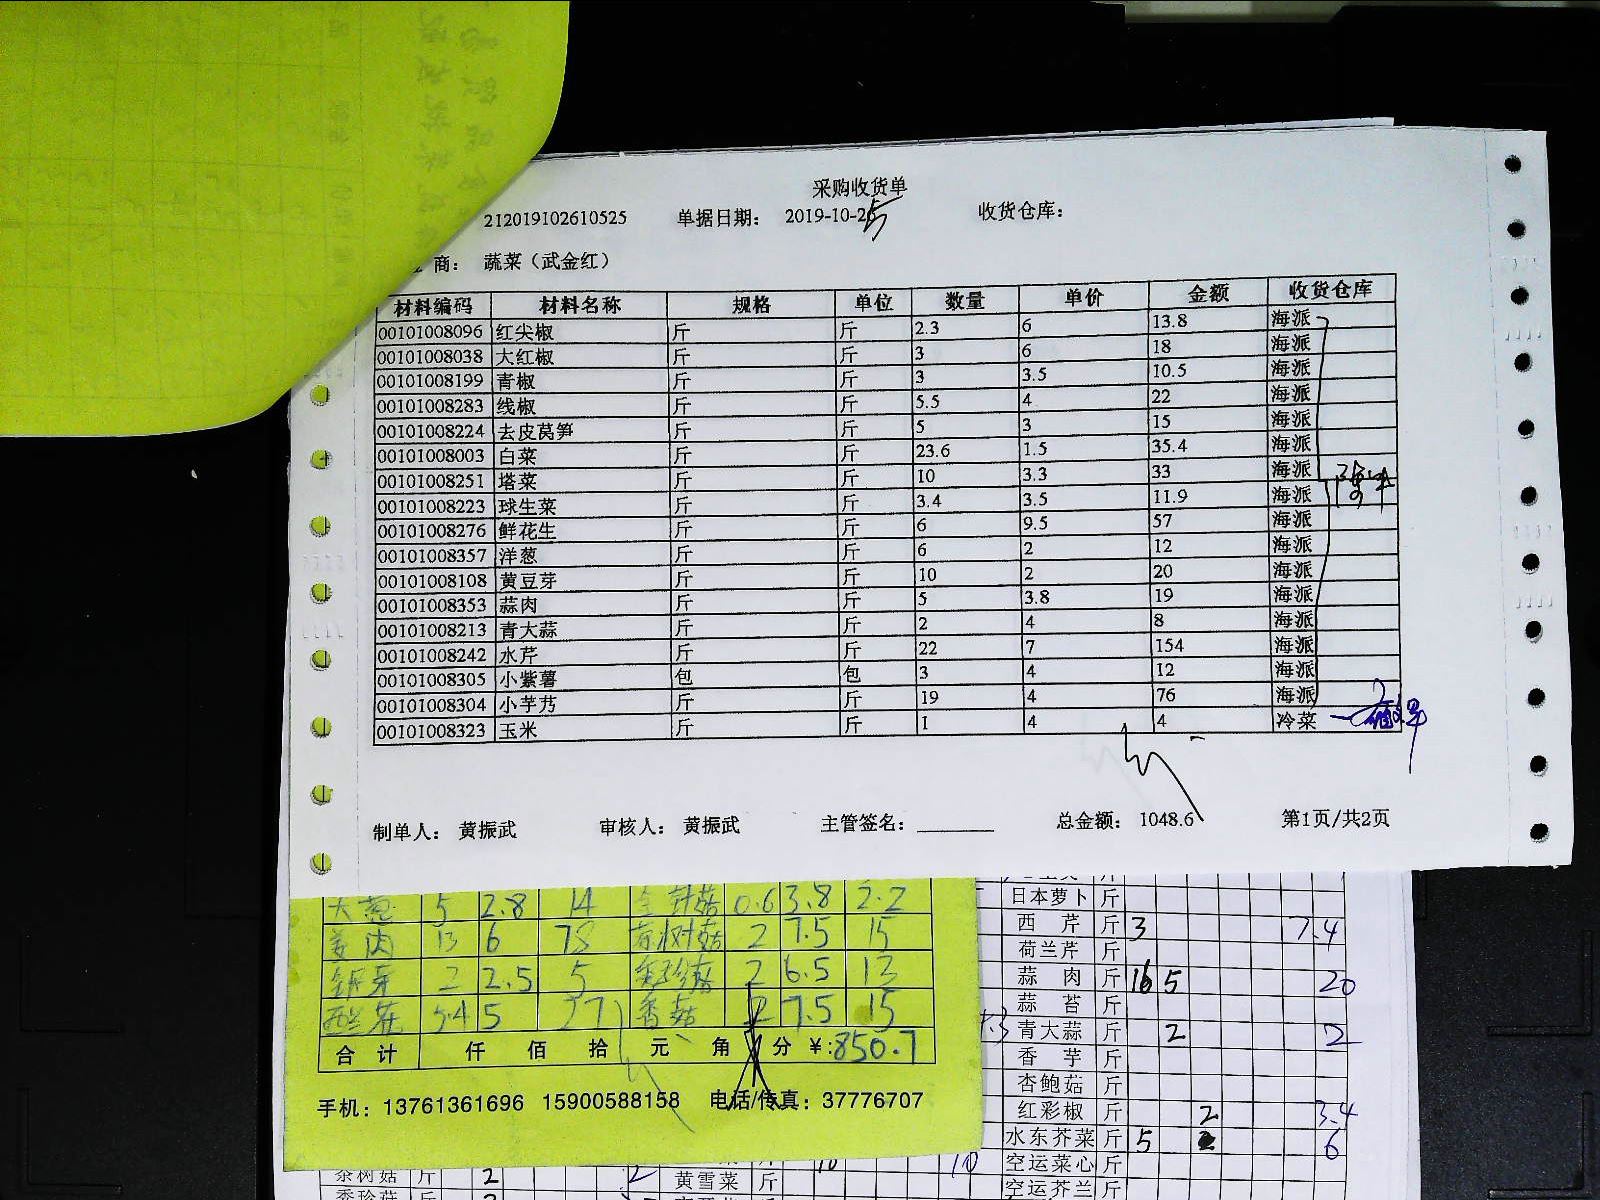 采购收货单
212019102610525 单据日期： 2019-10-25 收货仓库：
商： 蔬菜（武金红）
材料编码 材料名称 规格 单位 数量 单价 金额 收货仓库
00101008096 红尖椒 斤 斤 2.3 6 13.8 海派
00101008038 大红椒 斤 斤 3 6 18 海派
00101008199 青椒 斤 斤 3 3.5 10.5 海派
00101008283 线椒 斤 斤 5.5 4 22 海派
00101008224 去皮莴笋 斤 斤 5 3 15 海派
00101008003 白菜 斤 斤 23.6 1.5 35.4 海派
00101008251 塔菜 斤 斤 10 3.3 33 海派
00101008223 球生菜 斤 斤 3.4 3.5 11.9 海派
00101008276 鲜花生 斤 斤 6 9.5 57 海派
00101008357 洋葱 斤 斤 6 2 12 海派
00101008108 黄豆芽 斤 斤 10 2 20 海派
00101008353 蒜肉 斤 斤 5 3.8 19 海派
00101008213 青大蒜 斤 斤 2 4 8 海派
00101008242 水芹 斤 斤 22 7 154 海派
00101008305 小紫薯 包 包 3 4 12 海派
00101008304 小芋艿 斤 斤 19 4 76 海派
00101008323 玉米 斤 斤 1 4 4 冷菜
制单人： 黄振武 审核人： 黄振武 主管签名： 总金额： 1048.6 第1页/共2页
大葱 5 2.8 14 金针菇 0.6 3.8 2.2
姜肉 13 6 78 茶树菇 2 7.5 15
2 2.5 5 2 6.5 13
西兰花 5.4 5 27 香菇 2 7.5 15
合计 仟 佰 拾 元 角 分 ¥：850.7
手机：13761361696 15900588158 电话/传真：37776707
日本萝卜 斤
西芹 斤 3 7.4
荷兰芹 斤
蒜肉 斤 16 5 20
蒜苔 斤
青大蒜 斤 2 2
香芋 斤
杏鲍菇 斤
红彩椒 斤 2 3.4
水东芥菜 斤 5 6
空运菜心 斤
空运芥兰 斤
茶树菇 斤 2 2 黄雪菜 斤 10 10